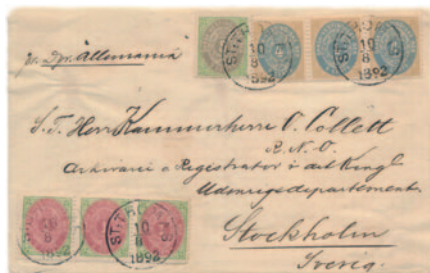 pr. Dpr. Allemania
ST. THOMAS
10
8
1892
ST. THOMAS
10
8
1892
S. T. Herr Kammerherre O. Collett
R. N. O.
Arkivarie o Registrator i det Kongl
Utenrigsdepartement
Stockholm
Sverig.
10
8
1892
ST. THOMAS
10
8
1892